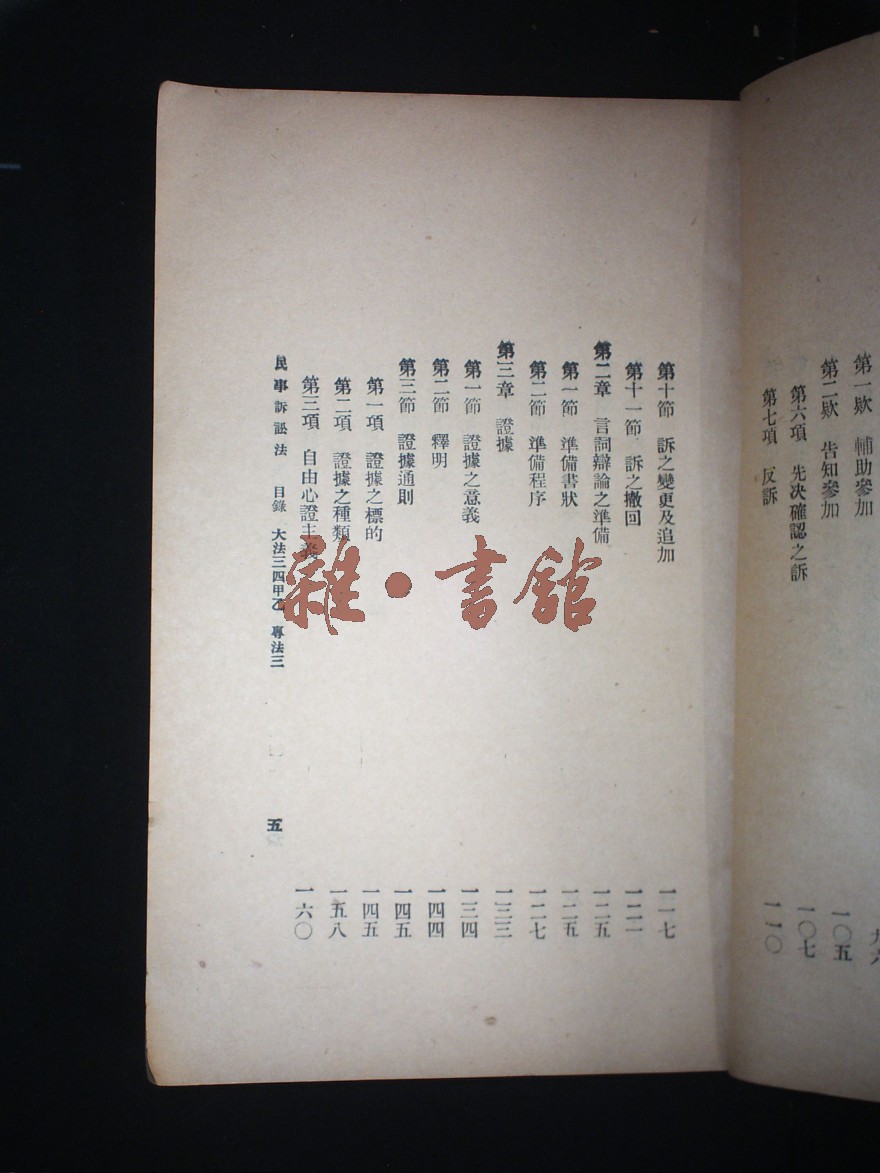 第一欵 輔助參加
第二欵 告知參加 一〇五
第六項 先決確認之訴 一〇七
第七項 反訴 一一〇
第十節 訴之變更及追加 一一七
第十一節 訴之撤回 一二一
第二章 言詞辯論之準備 一二五
第一節 準備書狀 一二五
第二節 準備程序 一二七
第三章 證據 一三三
第一節 證據之意義 一三四
第二節 釋明 一四四
第三節 證據通則 一四五
第一項 證據之標的 一四五
第二項 證據之種類 一五八
第三項 自由心證主義 一六〇
民事訴訟法 目錄 大法三四甲乙 專法三 五
雜·書館